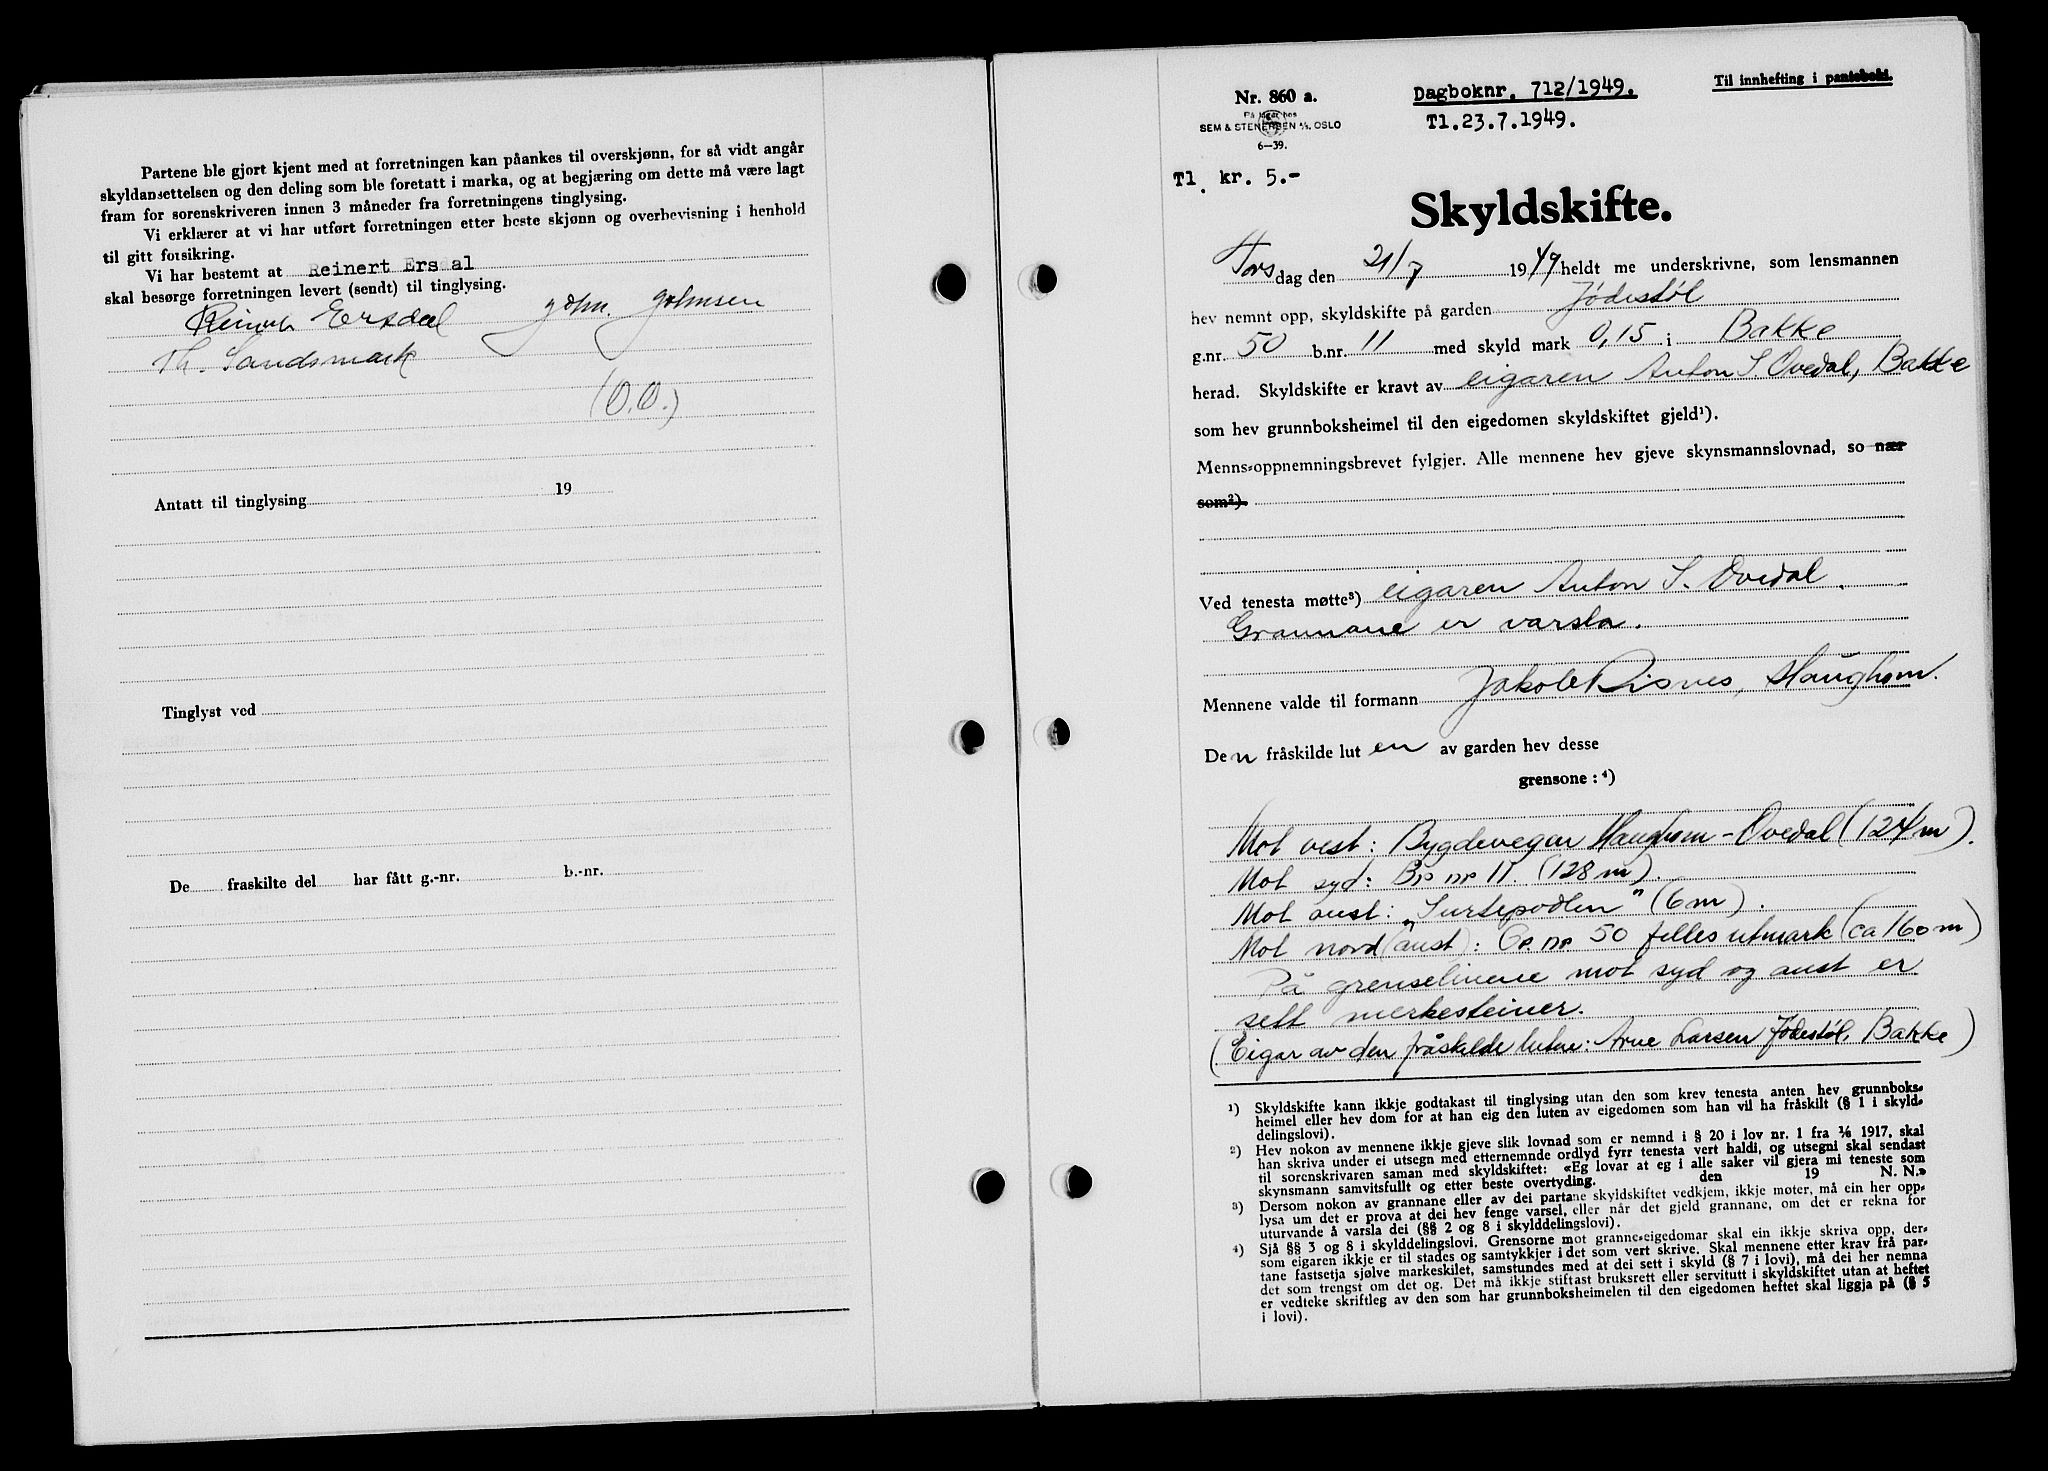 Partene ble gjort kjent med at forretningen kan påankes til overskjønn, for så vidt angår
skyldansettelsen og den deling som ble foretatt i marka, og at begjæring om dette må være lagt
fram for sorenskriveren innen 3 måneder fra forretningens tinglysing.
Vi erklærer at vi har utført forretningen etter beste skjønn og overbevisning i henhold
til gitt forsikring.
Vi har bestemt at Reinert Ersdal
skal besørge forretningen levert (sendt) til tinglysing.
Reinert Ersdal John. Johnsen
Th. Sandsmark
(O.O.)
Antatt til tinglysing 19
Tinglyst ved
De fraskilte del har fått g.-nr. b.-nr.
Nr. 860 a.
På lager hos
SEM & STENERSEN A/S. OSLO
6—39.
Dagboknr. 712/1949.
Tl.23.7.1949.
Til innhefting i pantebokl.
Tl. kr. 5.-
Skyldskifte.
Torsdag den 21/7 1949 heldt me underskrivne, som lensmannen
hev nemnt opp, skyldskifte på garden Jødestøl
g.nr. 50 b.nr. 11 med skyld mark 0,15 i Bakke
herad. Skyldskifte er kravt av eigaren Anton S. Ovedal, Bakke
som hev grunnboksheimel til den eigedomen skyldskiftet gjeld¹).
Menns-oppnemningsbrevet fylgjer. Alle mennene hev gjeve skynsmannslovnad, so nær
som²).
Ved tenesta møtte³) eigaren Anton S. Ovedal.
Grannane er varsla.
Mennene valde til formann Jakob Risnes, Haughom.
Den fråskilde luten av garden hev desse
grensone: ⁴)
Mot vest: Bygdevegen Haughom - Ovedal (124 m).
Mot syd: Br nr 11. (128 m).
Mot aust: "Surtepodlen" (6 m).
Mot nord (aust): Gr. nr 50 felles utmark (ca 160 m)
På grenselinene mot syd og aust er
sett merkesteiner.
(Eigar av den fråskilde luten: Arne Larsen Jødestøl, Bakke)
¹) Skyldskifte kann ikkje godtakast til tinglysing utan den som krev tenesta anten hev grunnboks-
heimel eller hev dom for at han eig den luten av eigedomen som han vil ha fråskilt (§ 1 i skyld-
delingslovi).
²) Hev nokon av mennene ikkje gjeve slik lovnad som er nemnd i § 20 i lov nr. 1 fra ⅛ 1917, skal
han skriva under ei utsegn med etternemnde ordlyd fyrr tenesta vert haldi, og utsegni skal sendast
til sorenskrivaren saman med skyldskiftet: «Eg lovar at eg i alle saker vil gjera mi teneste som
skynsmann samvitsfullt og etter beste overtyding. den 19 N. N.»
³) Dersom nokon av grannane eller av dei partane skyldskiftet vedkjem, ikkje møter, må ein her opp-
lysa um det er prova at dei hev fenge varsel, eller når det gjeld grannane, om det er rekna for
uturvande å varsla dei (§§ 2 og 8 i skylddelingslovi).
⁴) Sjå §§ 3 og 8 i skylddelingslovi. Grensorne mot granne-eigedomar skal ein ikkje skriva opp, der-
som eigaren ikkje er til stades og samtykkjer i det som vert skrive. Skal mennene etter krav frå par-
tane fastsetja sjølve markeskilet, samstundes med at dei sett i skyld (§ 7 i lovi), må dei her nemna
det som trengst om det og. Det må ikkje stiftast bruksrett eller servitutt i skyldskiftet utan at heftet
er vedteke skriftleg av den som har grunnboksheimelen til den eigedomen heftet skal liggja på (§ 5
i lovi).